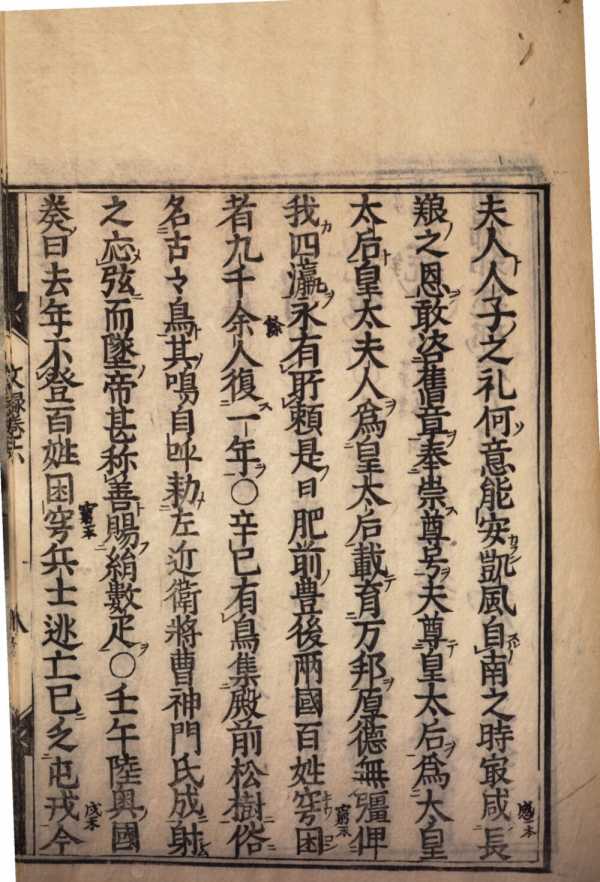 夫人人子之礼何意能安凱風自南之時㝡咸長
之恩敢咨舊章奉崇尊号夫尊皇太后為太皇
太后皇太夫人為皇太后載育万邦厚德無疆俾
我四瀛永有所頼是日肥前豊後兩國百姓窮困
者九千余人復一年〇辛巳有鳥集殿前松樹俗
名古々鳥其鳴自呼勅左近衛將曹神門氏成射
之応弦而墜帝甚称善賜絹數疋〇壬午陸奥國
奏曰去年不登百姓困窮兵士逃亡已乏屯戍今
文録卷六